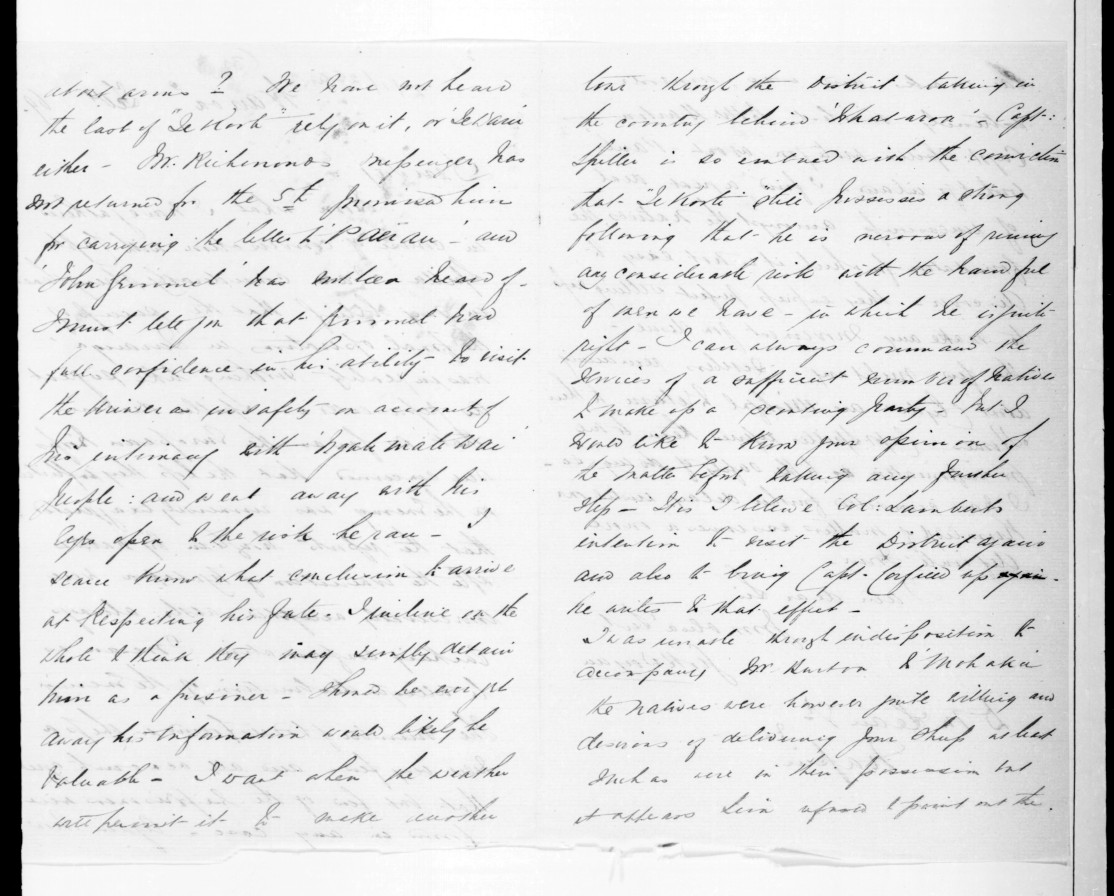 about arms? We have not heard
the last of "Te Kooti" rely on it, or 'Te Waru'
either - Mr. Richmonds messenger has
not returned for the 5th promised him
for carrying the letter to 'Paerau' - and
'John Grummel' has not been heard of -
I must tell you that Grummel had
full confidence in his ability to visit
the Urewera in safety on account of
his intimacy with 'Ngati matewai'
People: and went away with his
Eyes open to the risk he ran - I
scarce know what conclusion to arrive
at Respecting his fate. I incline on the
whole to think they may simply detain
him as a prisoner - Should he ever get
away his information would likely be
valuable - I want when the weather
will permit it to make another
tour through the District taking in
the country behind 'Whataroa' - Capt:
Spiller is so imbued with the conviction
that "Te Kooti" still possesses a strong
following that he is nervous of running
any considerable risk with the handful
of men we have - in which he is quite
right - I can always command the
services of a sufficient number of Natives
to make up a scouting party - But I
would like to know your opinion of
the matter before taking any further
step - It is I believe Col: Lamberts
intention to visit the District again
and also to bring Capt. Corfield up
he writes to that effect -
I was unable through indisposition to
accompany Mr. Burton to 'Mohaka'
the Natives were however quite willing and
desirous of delivering your Sheep at least
such as were in their possession but
it appears refused to point out the